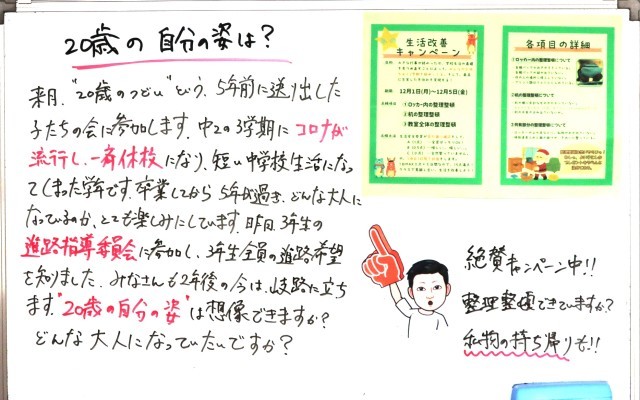 20歳の自分の姿は？
来月、"20歳のつどい"という、5年前に送り出した
子たちの会に参加します。中2の3学期にコロナが
流行し、一斉休校になり、短い中学校生活になっ
てしまった学年です。卒業してから5年が過ぎ、どんな大人に
なっているのか、とても楽しみにしています。昨日、3年生の
進路指導委員会に参加し、3年生全員の進路希望
を知りました。みなさんも2年後の今は、岐路に立ち
ます。"20歳の自分の姿"は想像できますか？
どんな大人になっていたいですか？
生活改善
キャンペーン
12月1日(月)〜12月5日(金)
①ロッカー内の整理整頓
②机の整理整頓
③教室全体の整理整頓
各項目の詳細
1 ロッカー内の整理整頓について
絶賛キャンペーン中!!
整理整頓できていますか？
私物の持ち帰りも!!